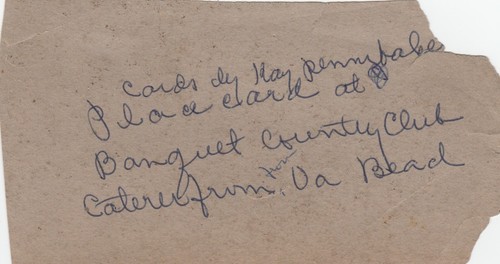 Cards by Kay Pennybake
Place card at
Banquet Country Club
Caterer from from Va Beach